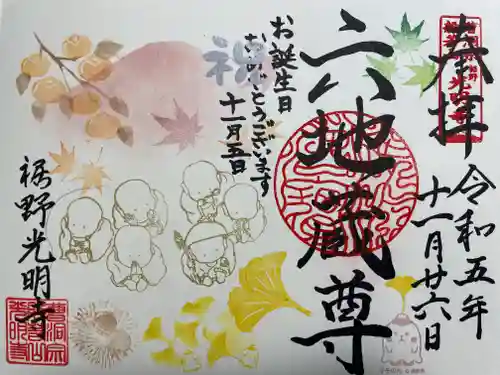 奉拝
令和五年
十一月廿六日
六地蔵尊
お誕生日
おめでとうございます
十一月五日
禅
裾野光明寺